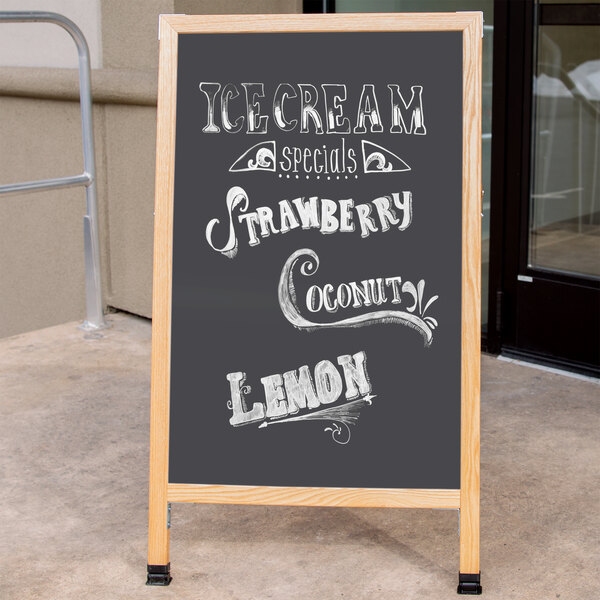 ICE CREAM
specials
STRAWBERRY
COCONUT
LEMON